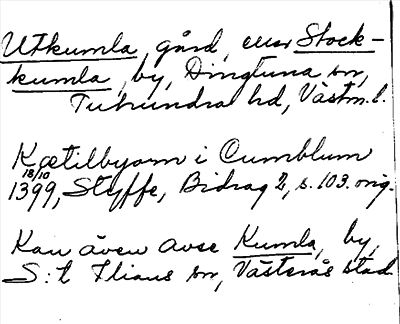 Utkumla, gård, eller Stock-
kumla, by, Dingtuna sn,
Tuhundra hd, Västm. l.
Kætilbyorn i Cumblum
18/10
1399, Styffe, Bidrag 2, s. 103. orig.
Kan även avse Kumla, by,
S:t Ilians sn, Västerås stad